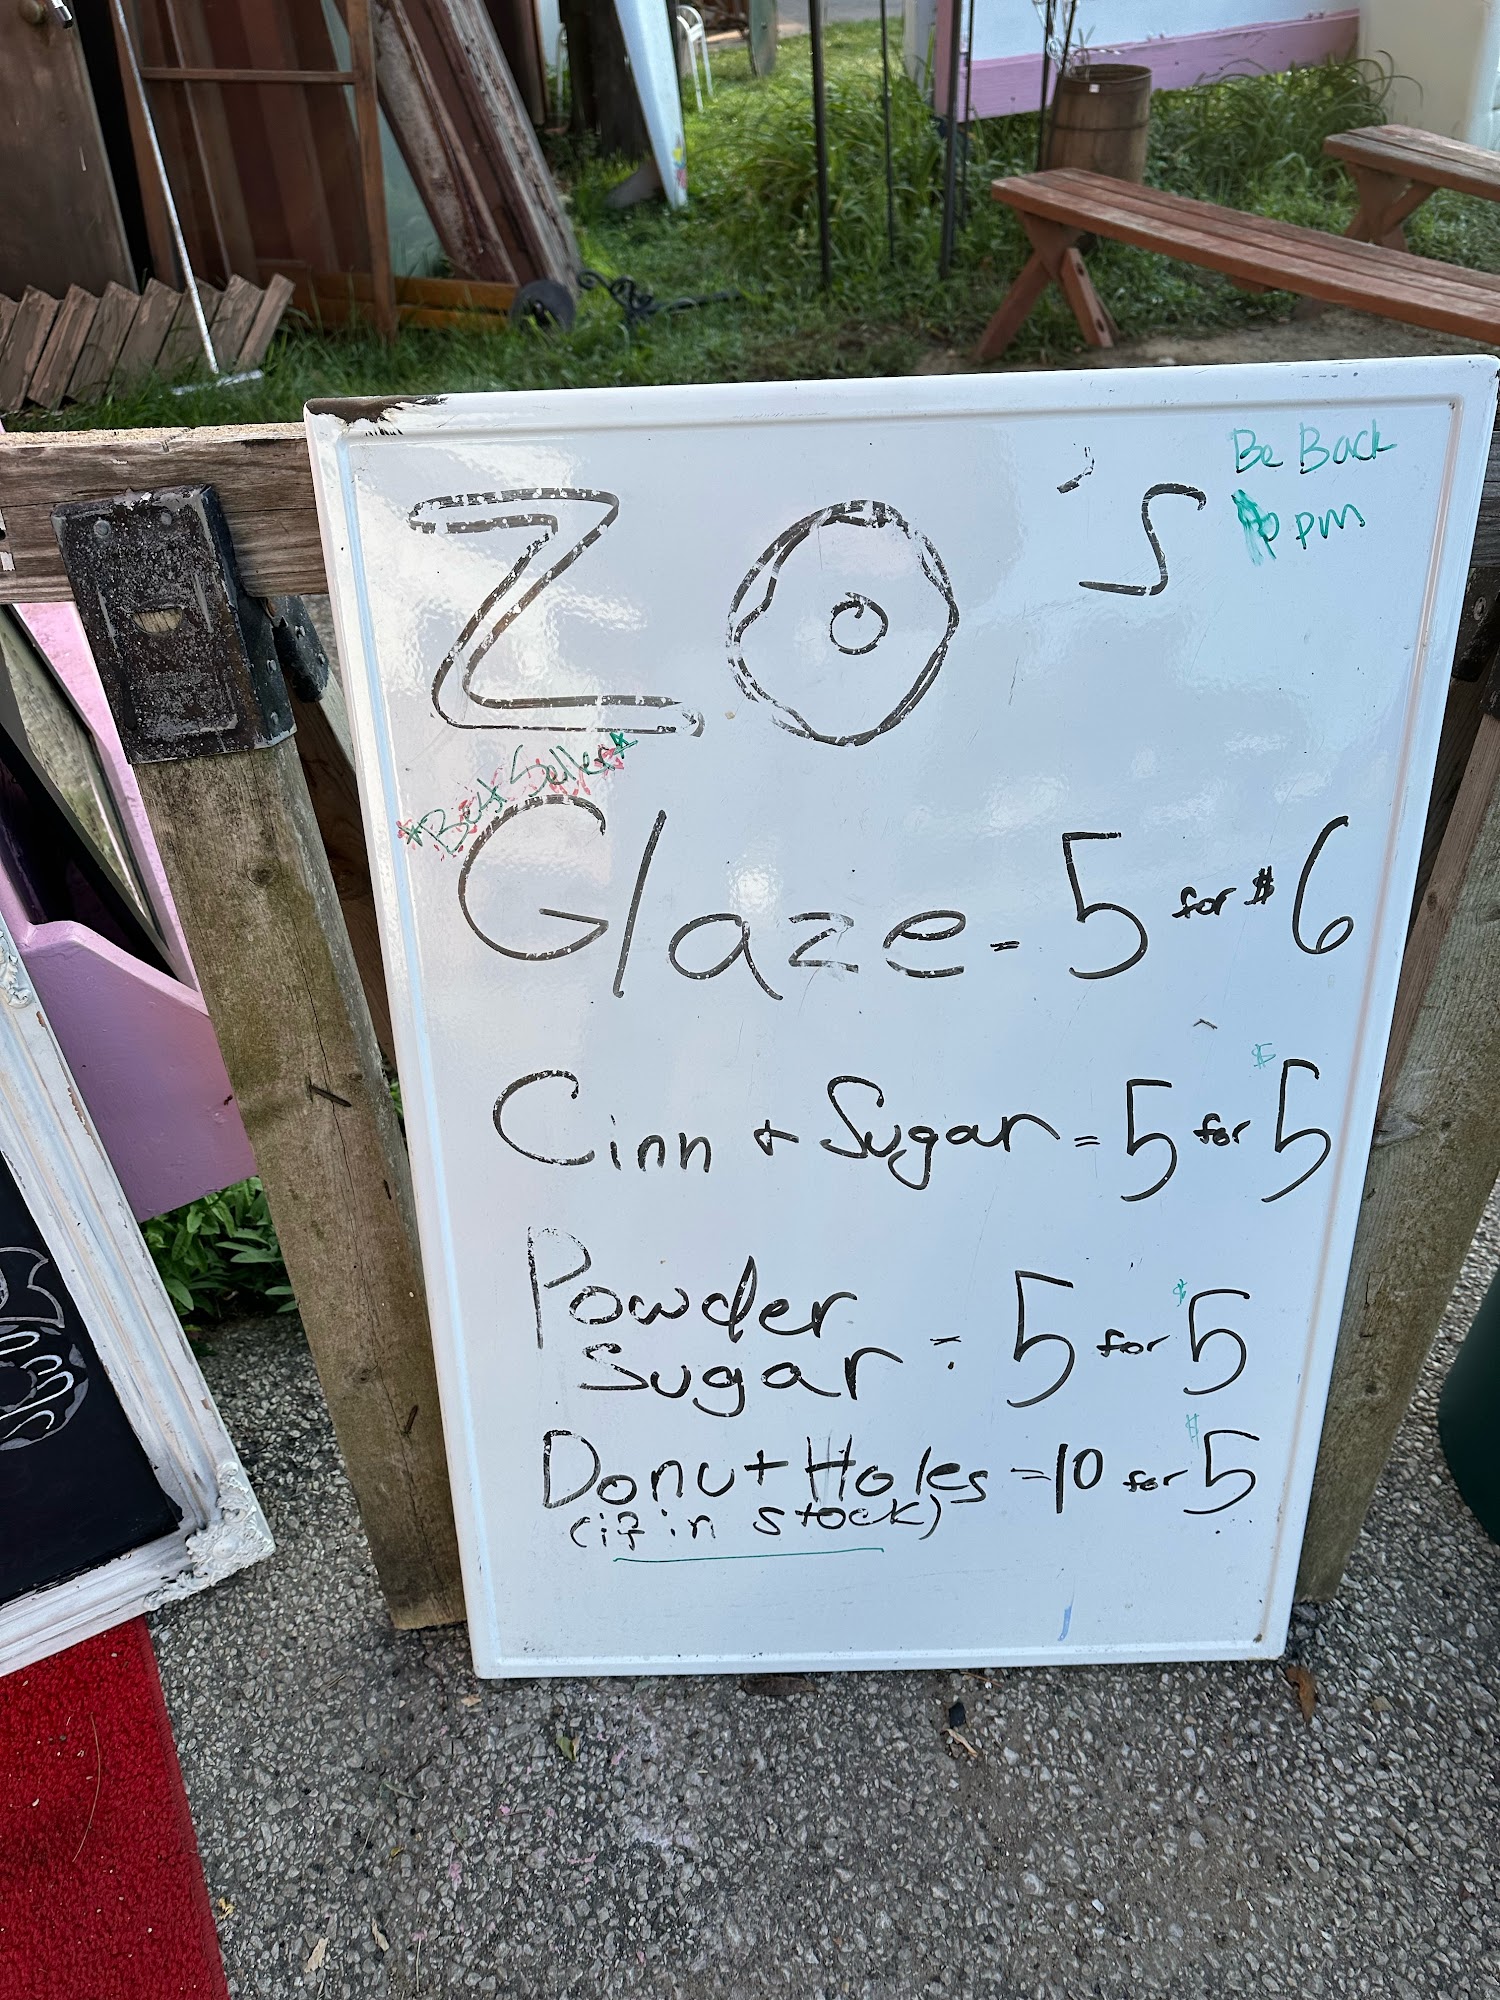 ZO's
Be Back
pm
*Best Seller*
Glaze = 5 for $6
Cinn + Sugar = 5 for $5
Powder
Sugar = 5 for $5
Donut Holes = 10 for $5
(if in stock)